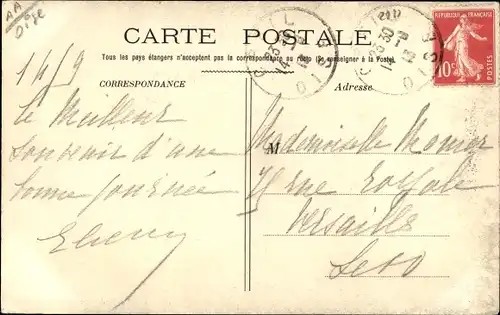 AA
Oise
CARTE POSTALE
Tous les pays étrangers n'acceptent pas la correspondance au recto (Se renseigner à la Poste).
CORRESPONDANCE
Adresse
REPUBLIQUE FRANÇAISE
10c
POSTES
OISE
14/9
Le Meilleur
souvenir d'une
bonne journée
M
Mademoiselle
rue Royale
Versailles